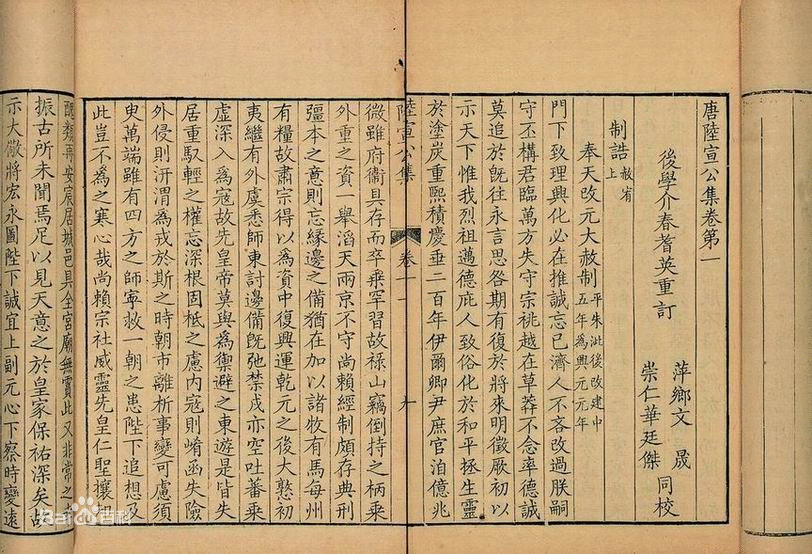 唐陸宣公集卷第一
後學介春耆英重訂
萍鄉文晟
崇仁華廷傑
同校
制誥 赦宥上
奉天改元大赦制 平朱泚後改建中五年為興元元年
門下致理興化必在推誠忘己濟人不吝改過朕嗣
守丕構君臨萬方失守宗祧越在草莽不念率德誠
莫追於既往永言思咎期有復於將來明徵厥初以
示天下惟我烈祖邁德庇人致俗化於和平拯生靈
於塗炭重熙積慶垂二百年伊爾卿尹庶官洎億兆
陸宣公集 卷一
微雖府衞具存而卒乘罕習故祿山竊倒持之柄乘
外重之資一舉滔天兩京不守尚賴經制頗存典刑
彊本之意則忘緣邊之備猶在加以諸牧有馬每州
有糧故肅宗得以為資中復興運乾元之後大憝初
夷繼有外虞悉師東討邊備既弛禁戍亦空吐蕃乘
虛深入為寇故先皇帝莫與為禦避之東遊是皆失
居重馭輕之權忘深根固柢之慮內寇則崤函失險
外侵則汧渭為戎於斯之時朝市離析事變可慮須
臾萬端雖有四方之師寧救一朝之患陛下追想及
此豈不為之寒心哉尚賴宗社威靈先皇仁聖攘
醜類再安宸居城邑具全宮廟無霣此又非常之
振古所未聞焉足以見天意之於皇家保祐深矣故
示大儆將宏永圖陛下誠宜上副元心下察時變遠
Baidu百科